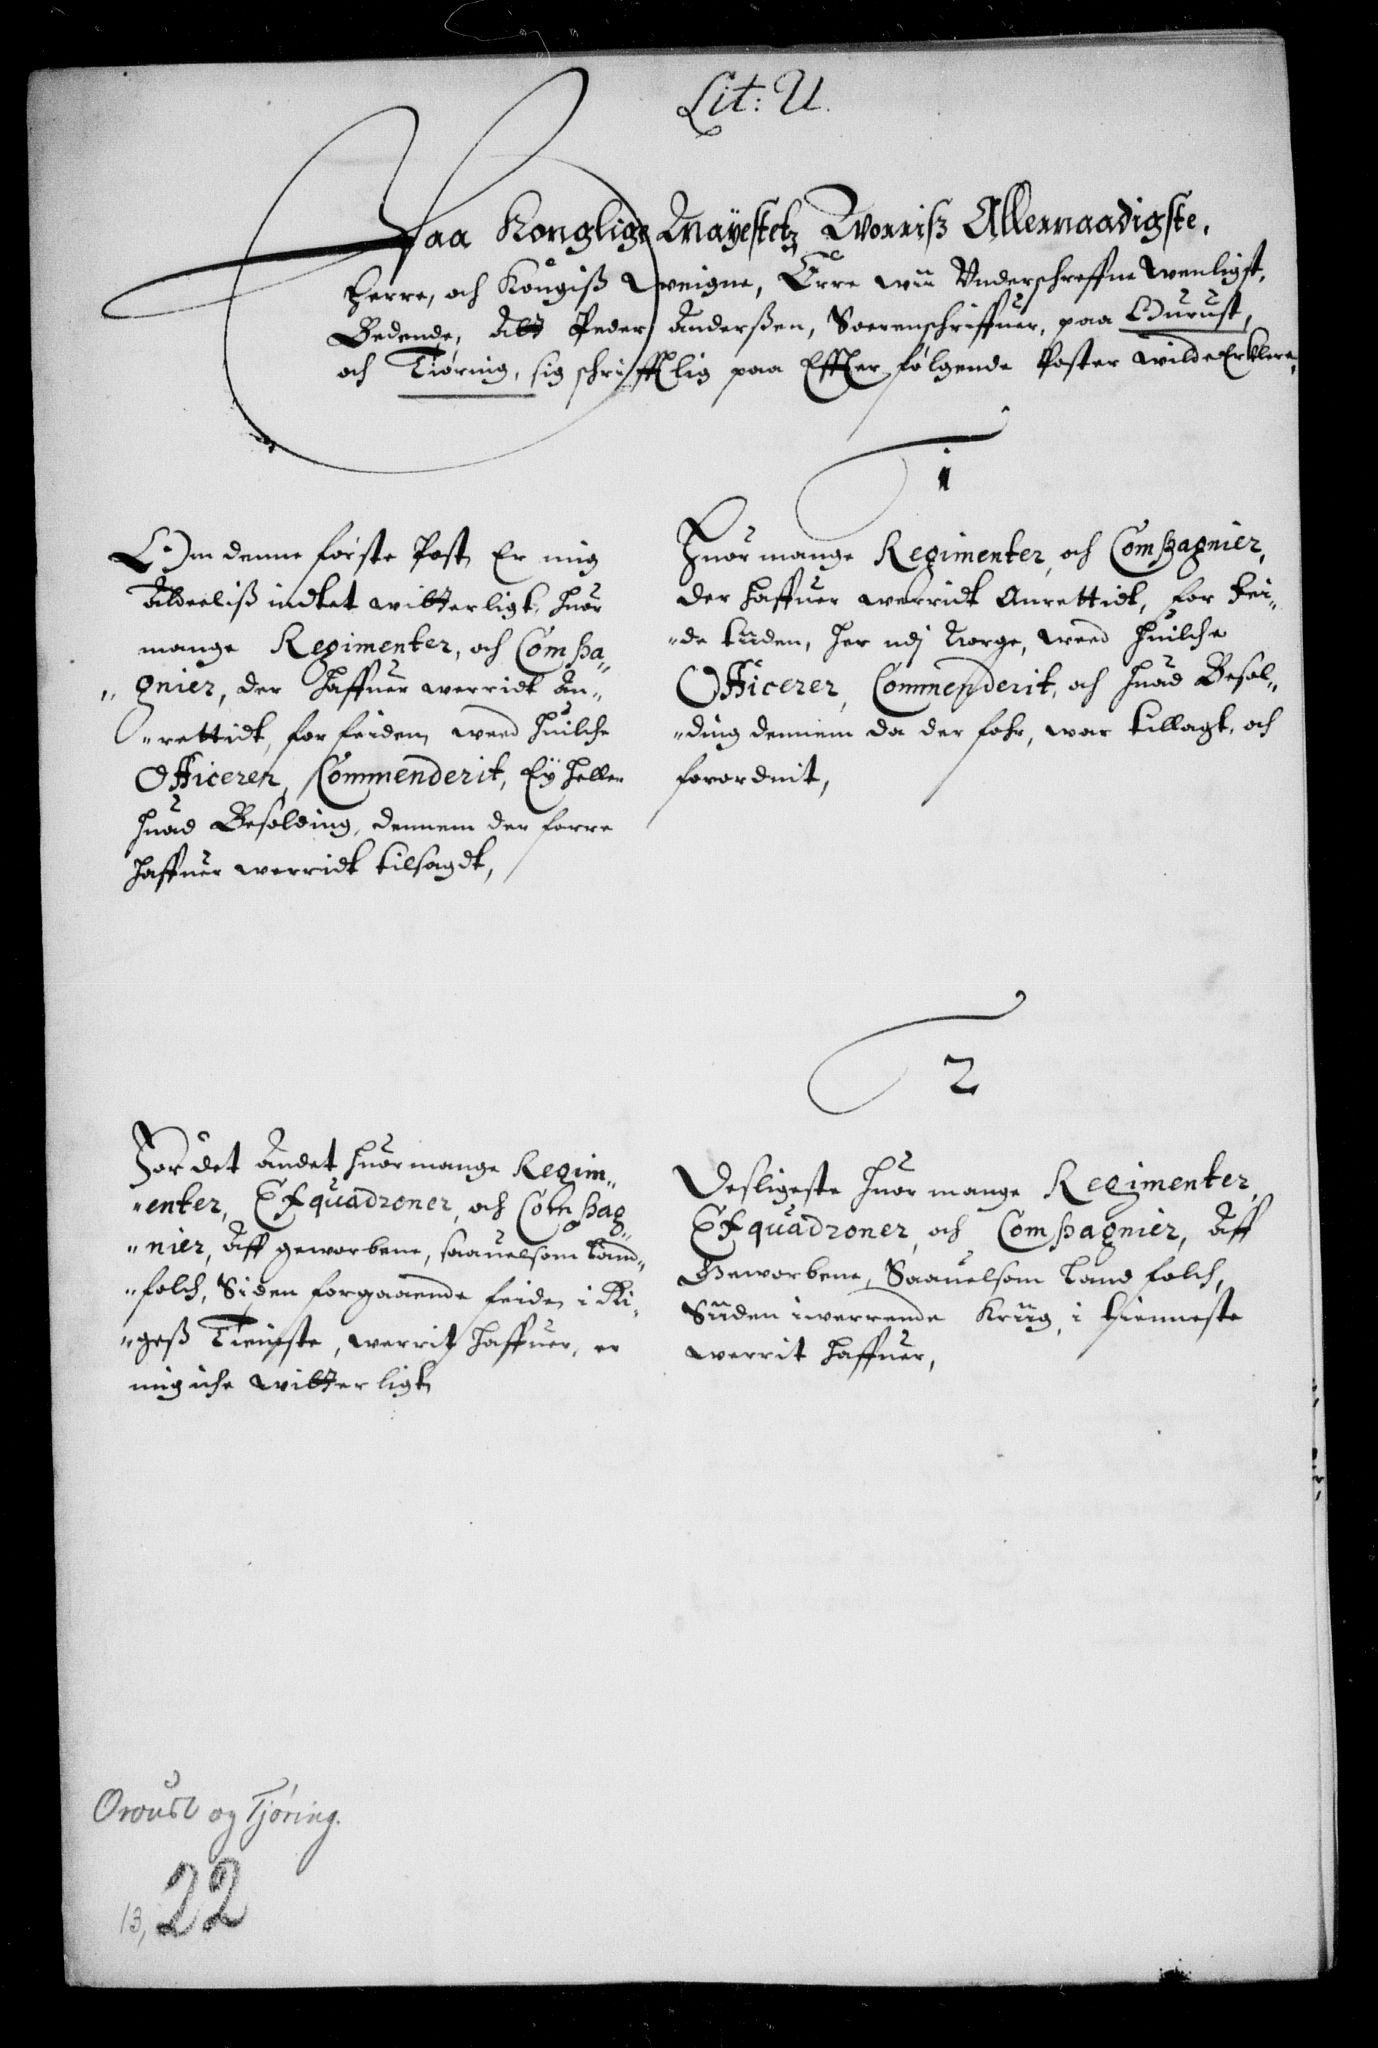 Lit: U.
Paa Konglige Mayestetz Worriß Allernaadigste,
Herre, och Kongiß Weigne, Erre wii Underschreffne wenligst,
Bedende, Att Peder Anderßen, Soerenschriffuer, paa Ourust,
och Tiøring, sig schrifftlig paa Effterfølgende Poster wilde Erklere,
1
Om denne første Post Er mig
Aldeeliß indtet witterligt, huor
mange Regimenter, och Compa„
„gnier, der Haffuer werridt An„
„rettidt, for feiden, weed Huilche
Officerer, Commenderit, Ey Heller
huad Besolding, dennem der forre
Haffuer werridt tilsagdt,
Huor mange Regimenter, och Compagnier,
der Haffuer werridt Anrettidt, for fei„
„de tiiden, her udj Norge, weed Huilche
Officerer, Commenderit, och huad Besol„
„ding dennem da der fohr, war tillagt, och
forordnit,
2
For det Andet huormange Regim„
„enter, Esquadroner, och Compag„
„nier, Aff geworbene, saauelsom Land„
„folch, Siden forgaaende feide, i Ri„
„geß Tieniste, werrit Haffuer, er
mig iche witterligt,
Desligeste huor mange Regimenter,
Esquadroner, och Compagnier, Aff
Geworbene, Saauelsom Land folch,
Siiden iwerrende Kriig, i tienneste
werrit Haffuer,
Oroust og Tjøring.
13, 22